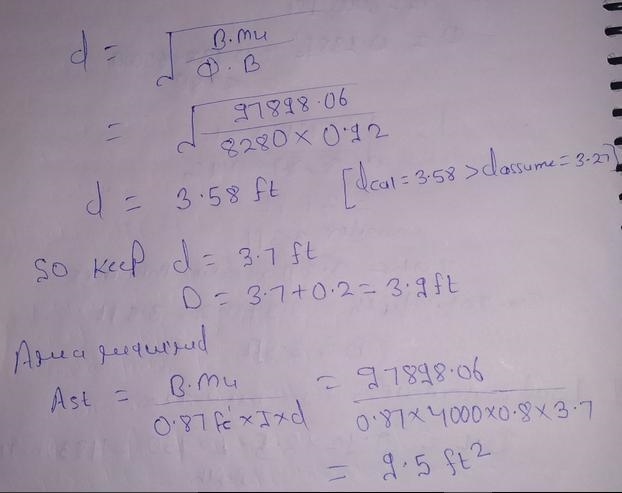 d = √ B.Mu / Φ . B
= √ 97898.06 / 8280 × 0.92
d = 3.58 ft [dcal = 3.58 > dassume = 3.27]
SO Keep d = 3.7 ft
D = 3.7 + 0.2 = 3.9 ft
Area required
Ast = B.Mu / 0.87 fc' × J × d = 97898.06 / 0.87 × 4000 × 0.8 × 3.7
= 9.5 ft²